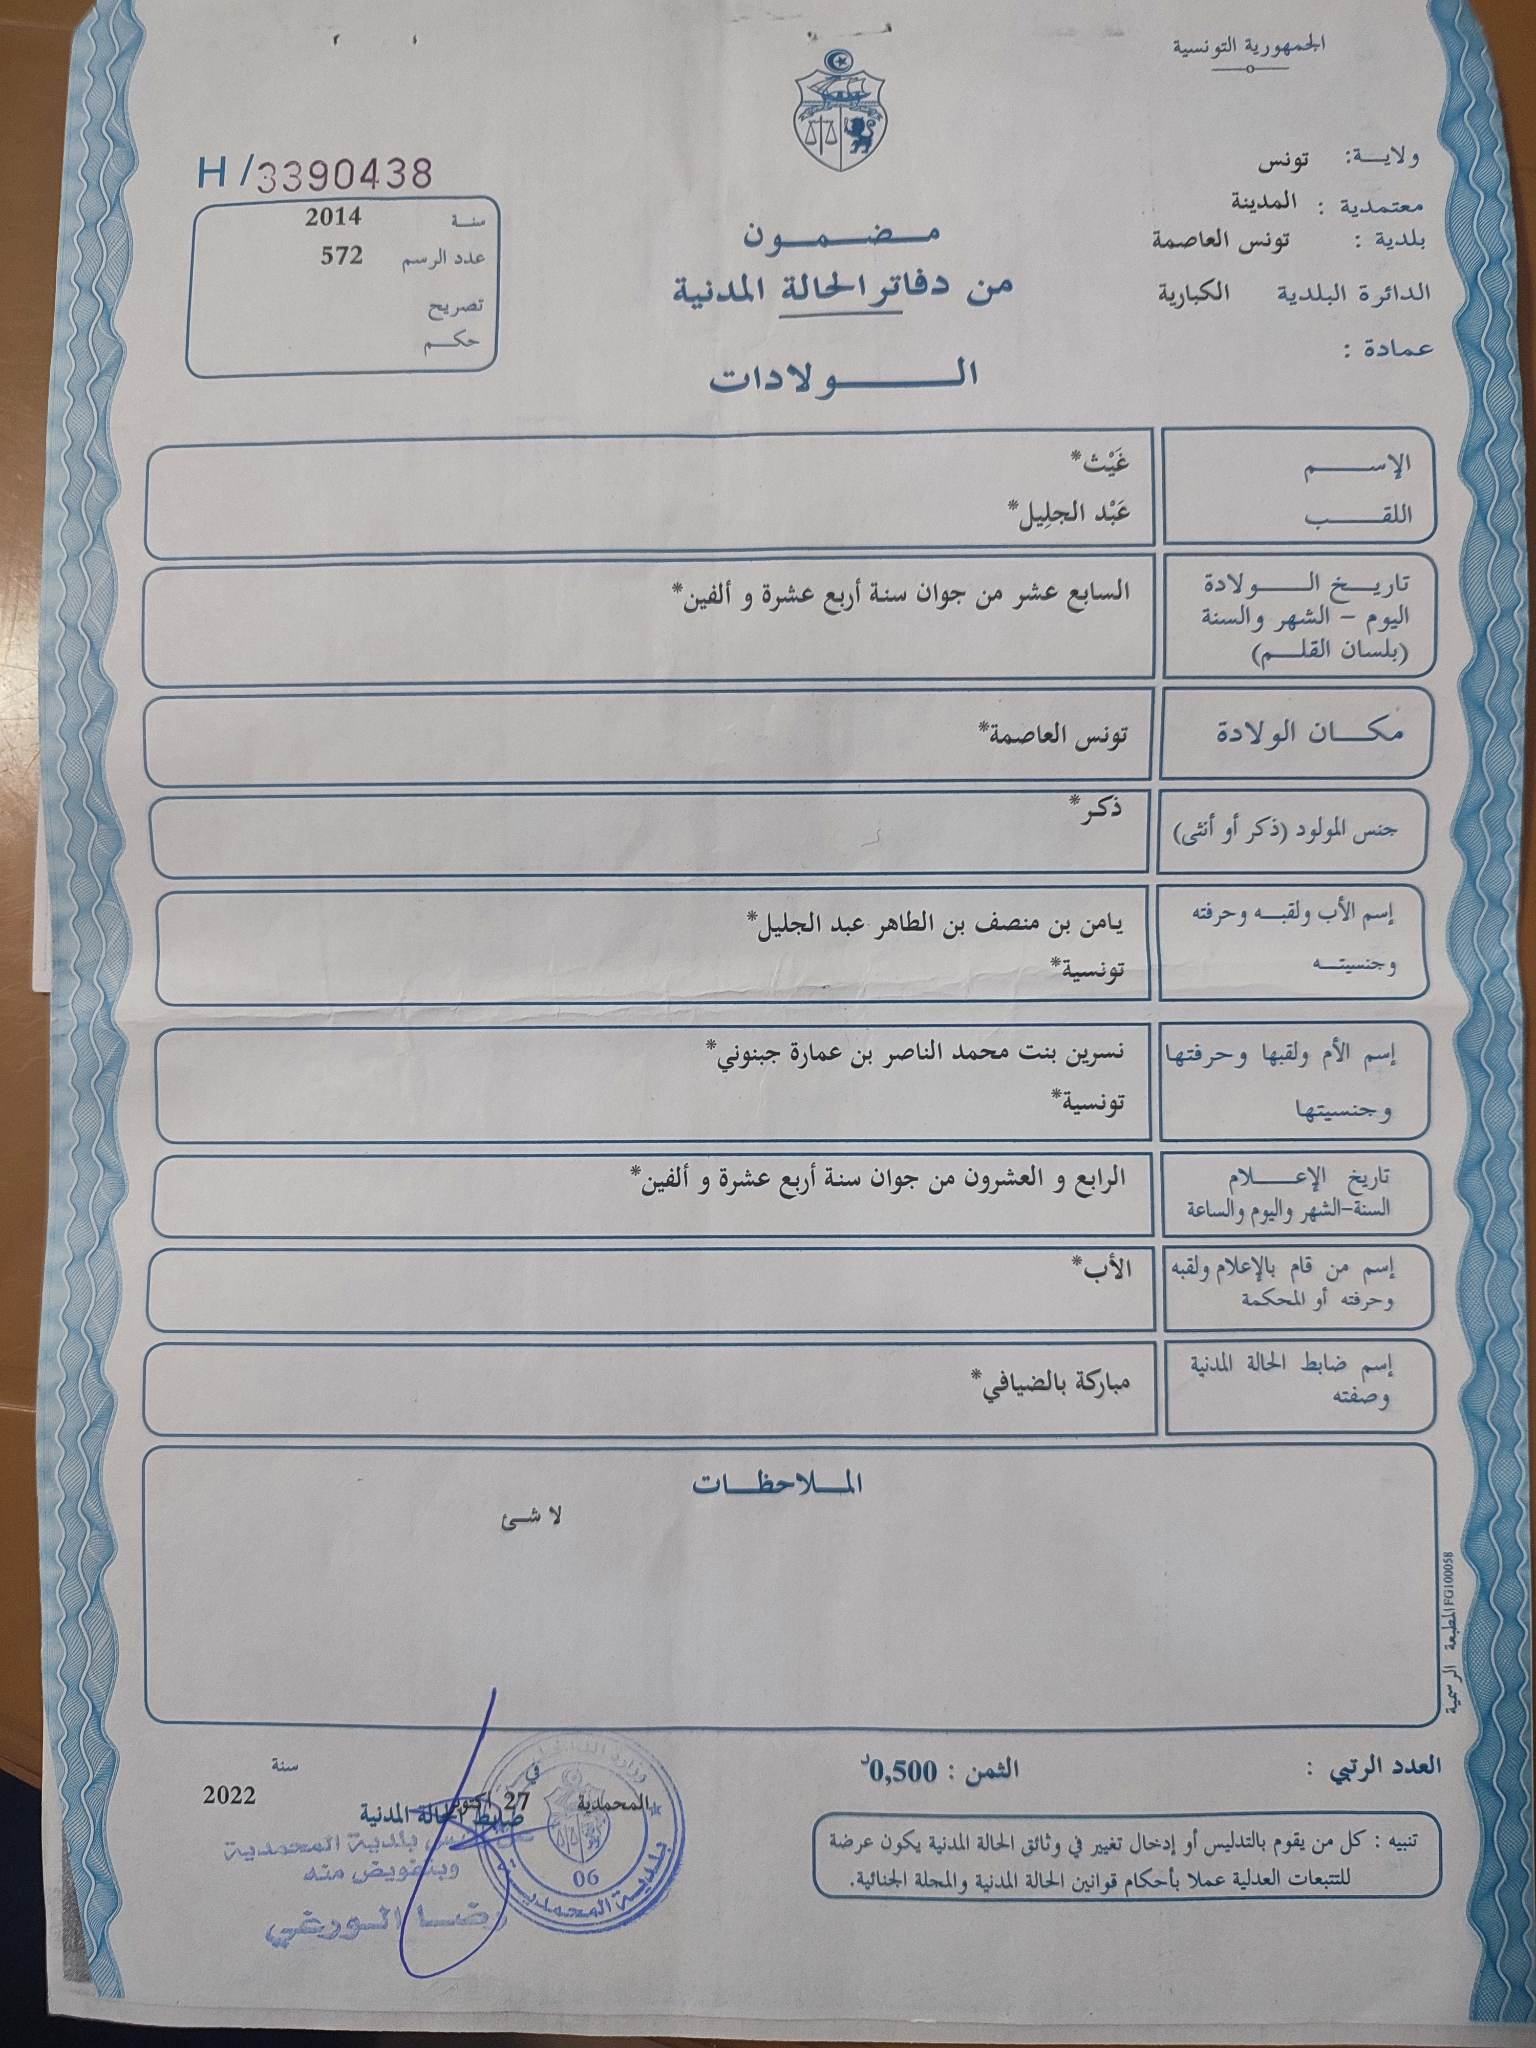 الجمهورية التونسية
ولاية: تونس
معتمدية : المدينة
بلدية : تونس العاصمة
الدائرة البلدية الكبارية
عمادة :
H/3390438
سنة 2014
عدد الرسم 572
تصريح
حكم
مضمون
من دفاتر الحالة المدنية
الولادات
الإسم غَيْث*
اللقب عَبْد الجلِيل*
تاريخ الولادة
اليوم - الشهر والسنة
(بلسان القلم)
السابع عشر من جوان سنة أربع عشرة و ألفين*
مكان الولادة تونس العاصمة*
جنس المولود (ذكر أو أنثى) ذكر*
إسم الأب ولقبه وحرفته يامن بن منصف بن الطاهر عبد الجليل*
وجنسيته تونسية*
إسم الأم ولقبها وحرفتها نسرين بنت محمد الناصر بن عمارة جبنوني*
وجنسيتها تونسية*
تاريخ الإعلام الرابع و العشرون من جوان سنة أربع عشرة و ألفين*
السنة-الشهر واليوم والساعة
إسم من قام بالإعلام ولقبه الأب*
وحرفته أو المحكمة
إسم ضابط الحالة المدنية مباركة بالضيافي*
وصفته
الملاحظات
لا شئ
المطبعة الرسمية FG100058
العدد الرتبي :
الثمن : 0,500د
تنبيه : كل من يقوم بالتدليس أو إدخال تغيير في وثائق الحالة المدنية يكون عرضة
للتتبعات العدلية عملا بأحكام قوانين الحالة المدنية والمجلة الجنائية.
المحمدية في 27 أكتوبر سنة 2022
ضابط الحالة المدنية
بلدية المحمدية
وبتفويض منه
رضا الورغي
بلدية المحمدية
06